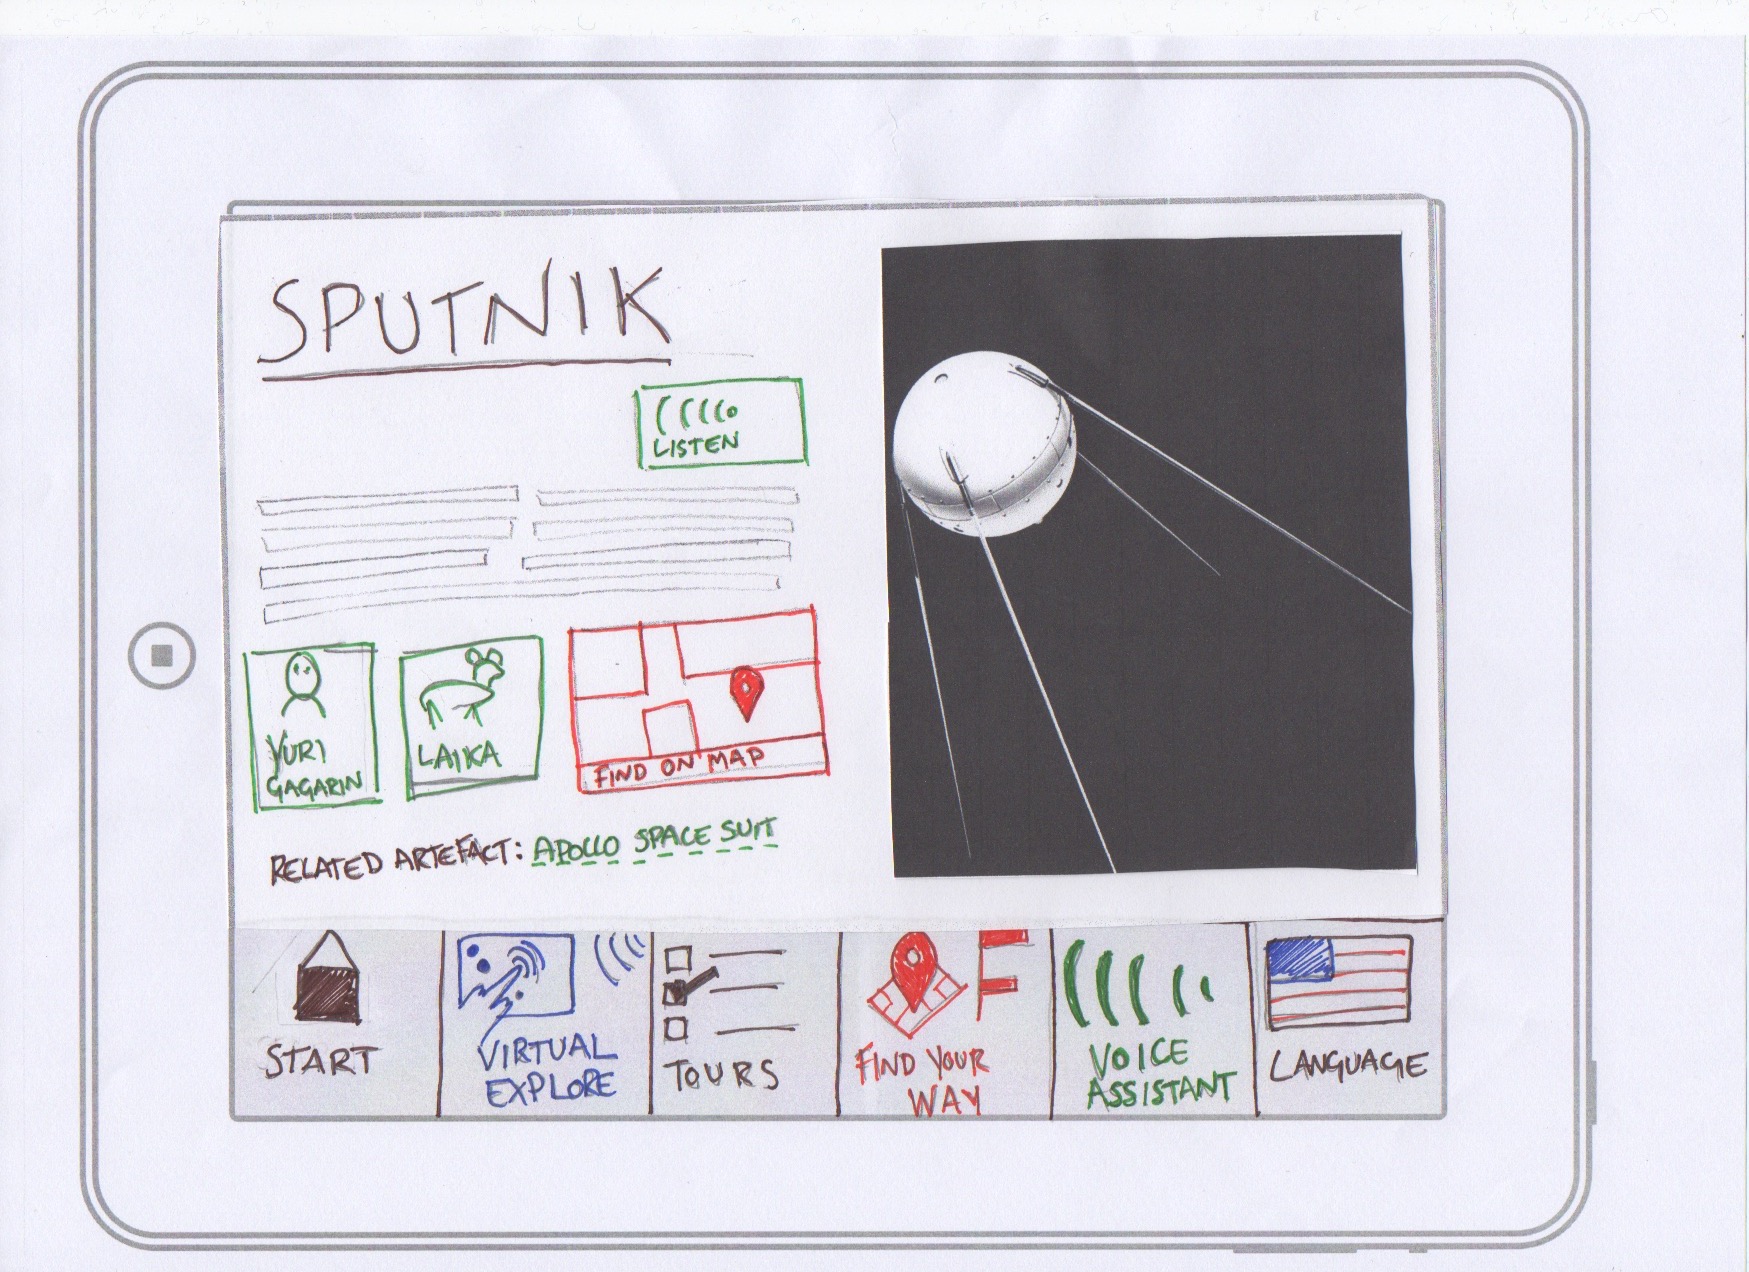 SPUTNIK
LISTEN
YURI
GAGARIN
LAIKA
FIND ON MAP
RELATED ARTEFACT: APOLLO SPACE SUIT
START
VIRTUAL
EXPLORE
TOURS
FIND YOUR
WAY
VOICE
ASSISTANT
LANGUAGE